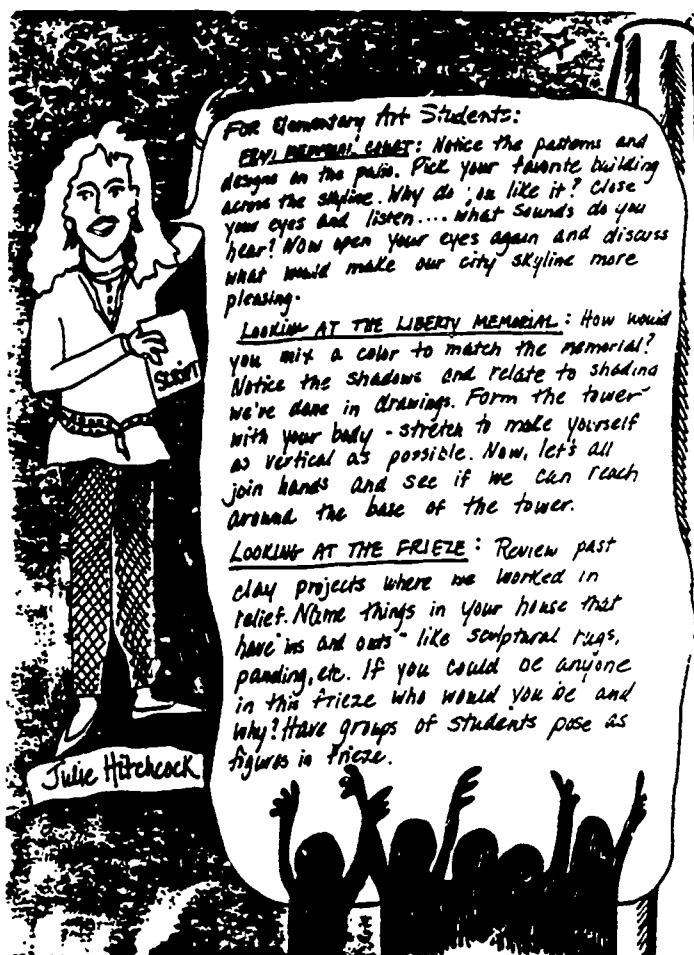 For Elementary Art Students:
MEMORIAL COURT: Notice the patterns and
designs on the patio. Pick your favorite building
across the skyline. Why do you like it? Close
your eyes and listen.... what sounds do you
hear? Now open your eyes again and discuss
what would make our city skyline more
pleasing.
LOOKING AT THE LIBERTY MEMORIAL: How would
you mix a color to match the memorial?
Notice the shadows and relate to shading
we've done in drawings. Form the tower
with your body - stretch to make yourself
as vertical as possible. Now, let's all
join hands and see if we can reach
around the base of the tower.
LOOKING AT THE FRIEZE: Review past
clay projects where we worked in
relief. Name things in your house that
have "ins and outs" like sculptural rugs,
etc. If you could be anyone
in this frieze who would you be and
why? Have groups of students pose as
figures in frieze.
SCRIPT
Julie Hitchcock